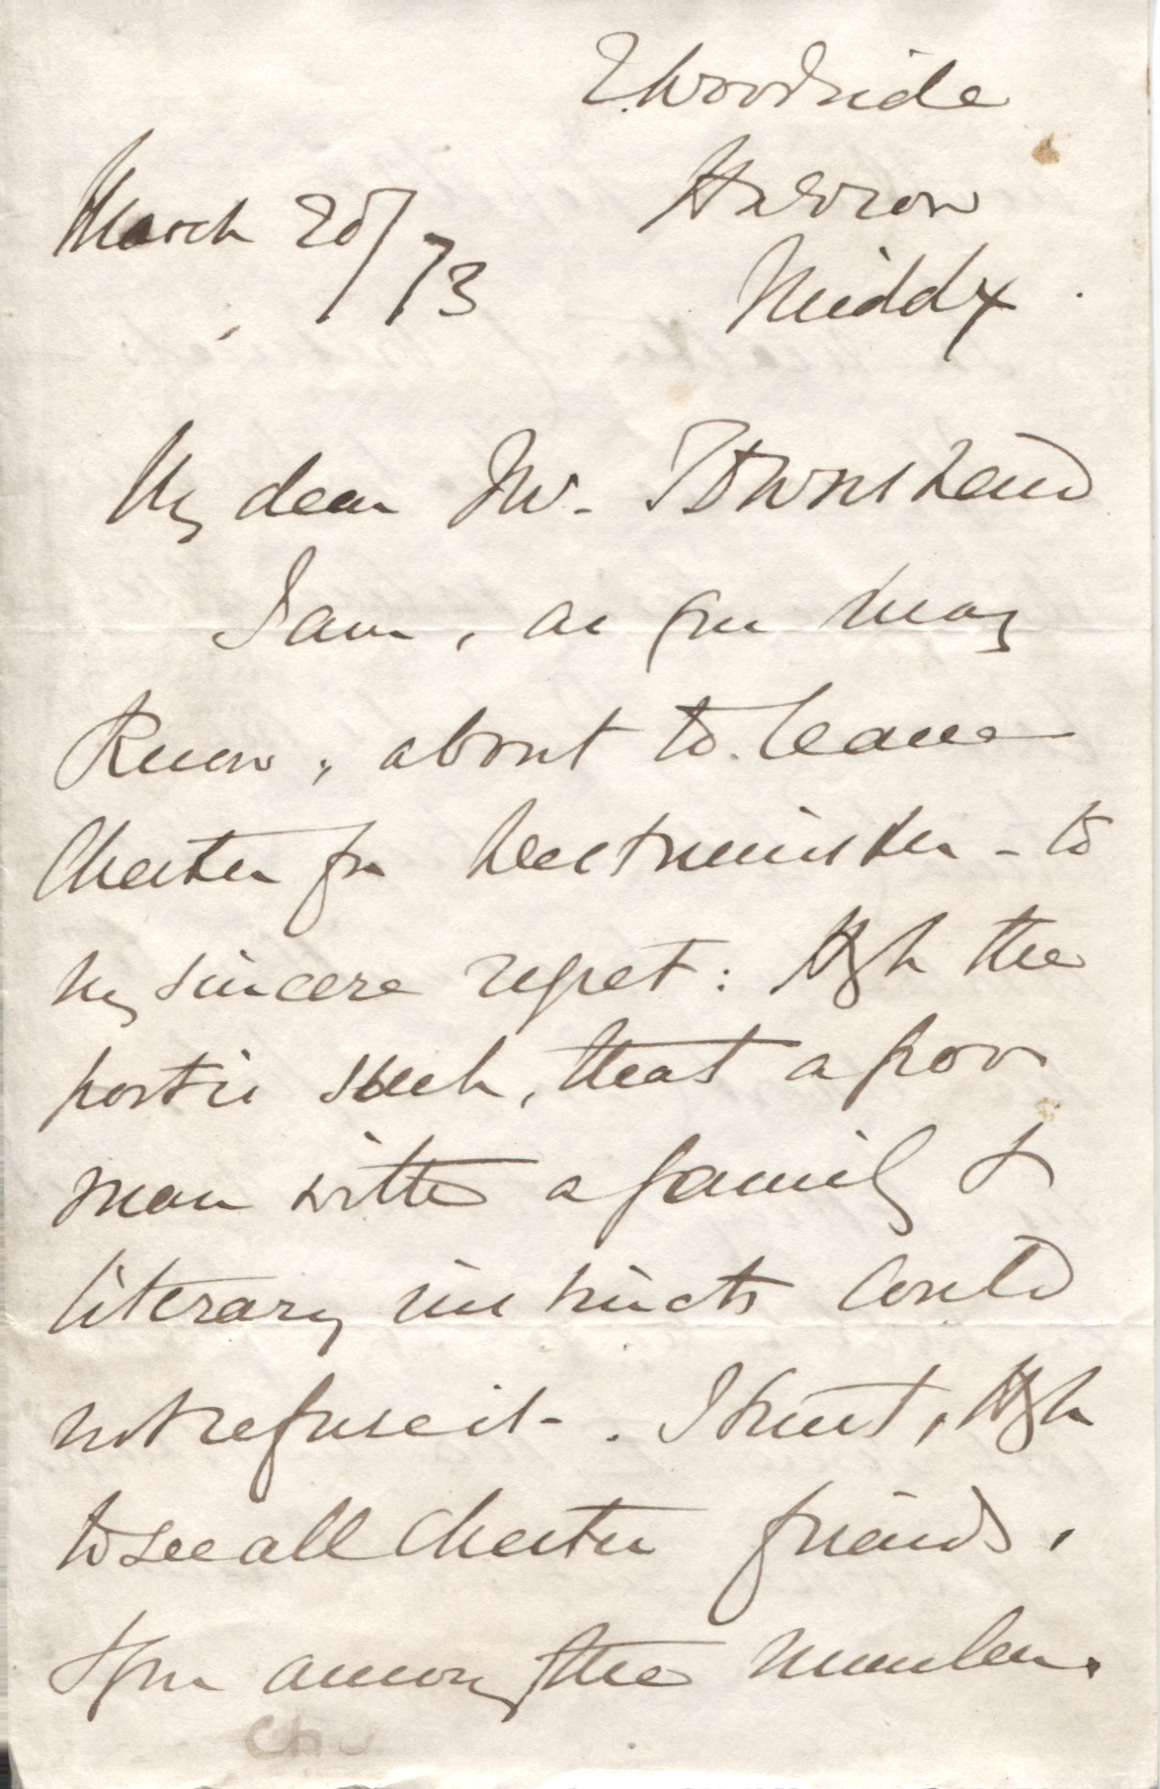 Woodside
Harrow
March 20/73
Middx.
My dear Mr. Townshend
I am, as you may
know, about to leave
Chester for Westminster - to
my sincere regret: tho' the
post is such, that a poor
man with a family &
literary instincts could
not refuse it. I trust, tho'
to see all Chester friends,
& you among the number.